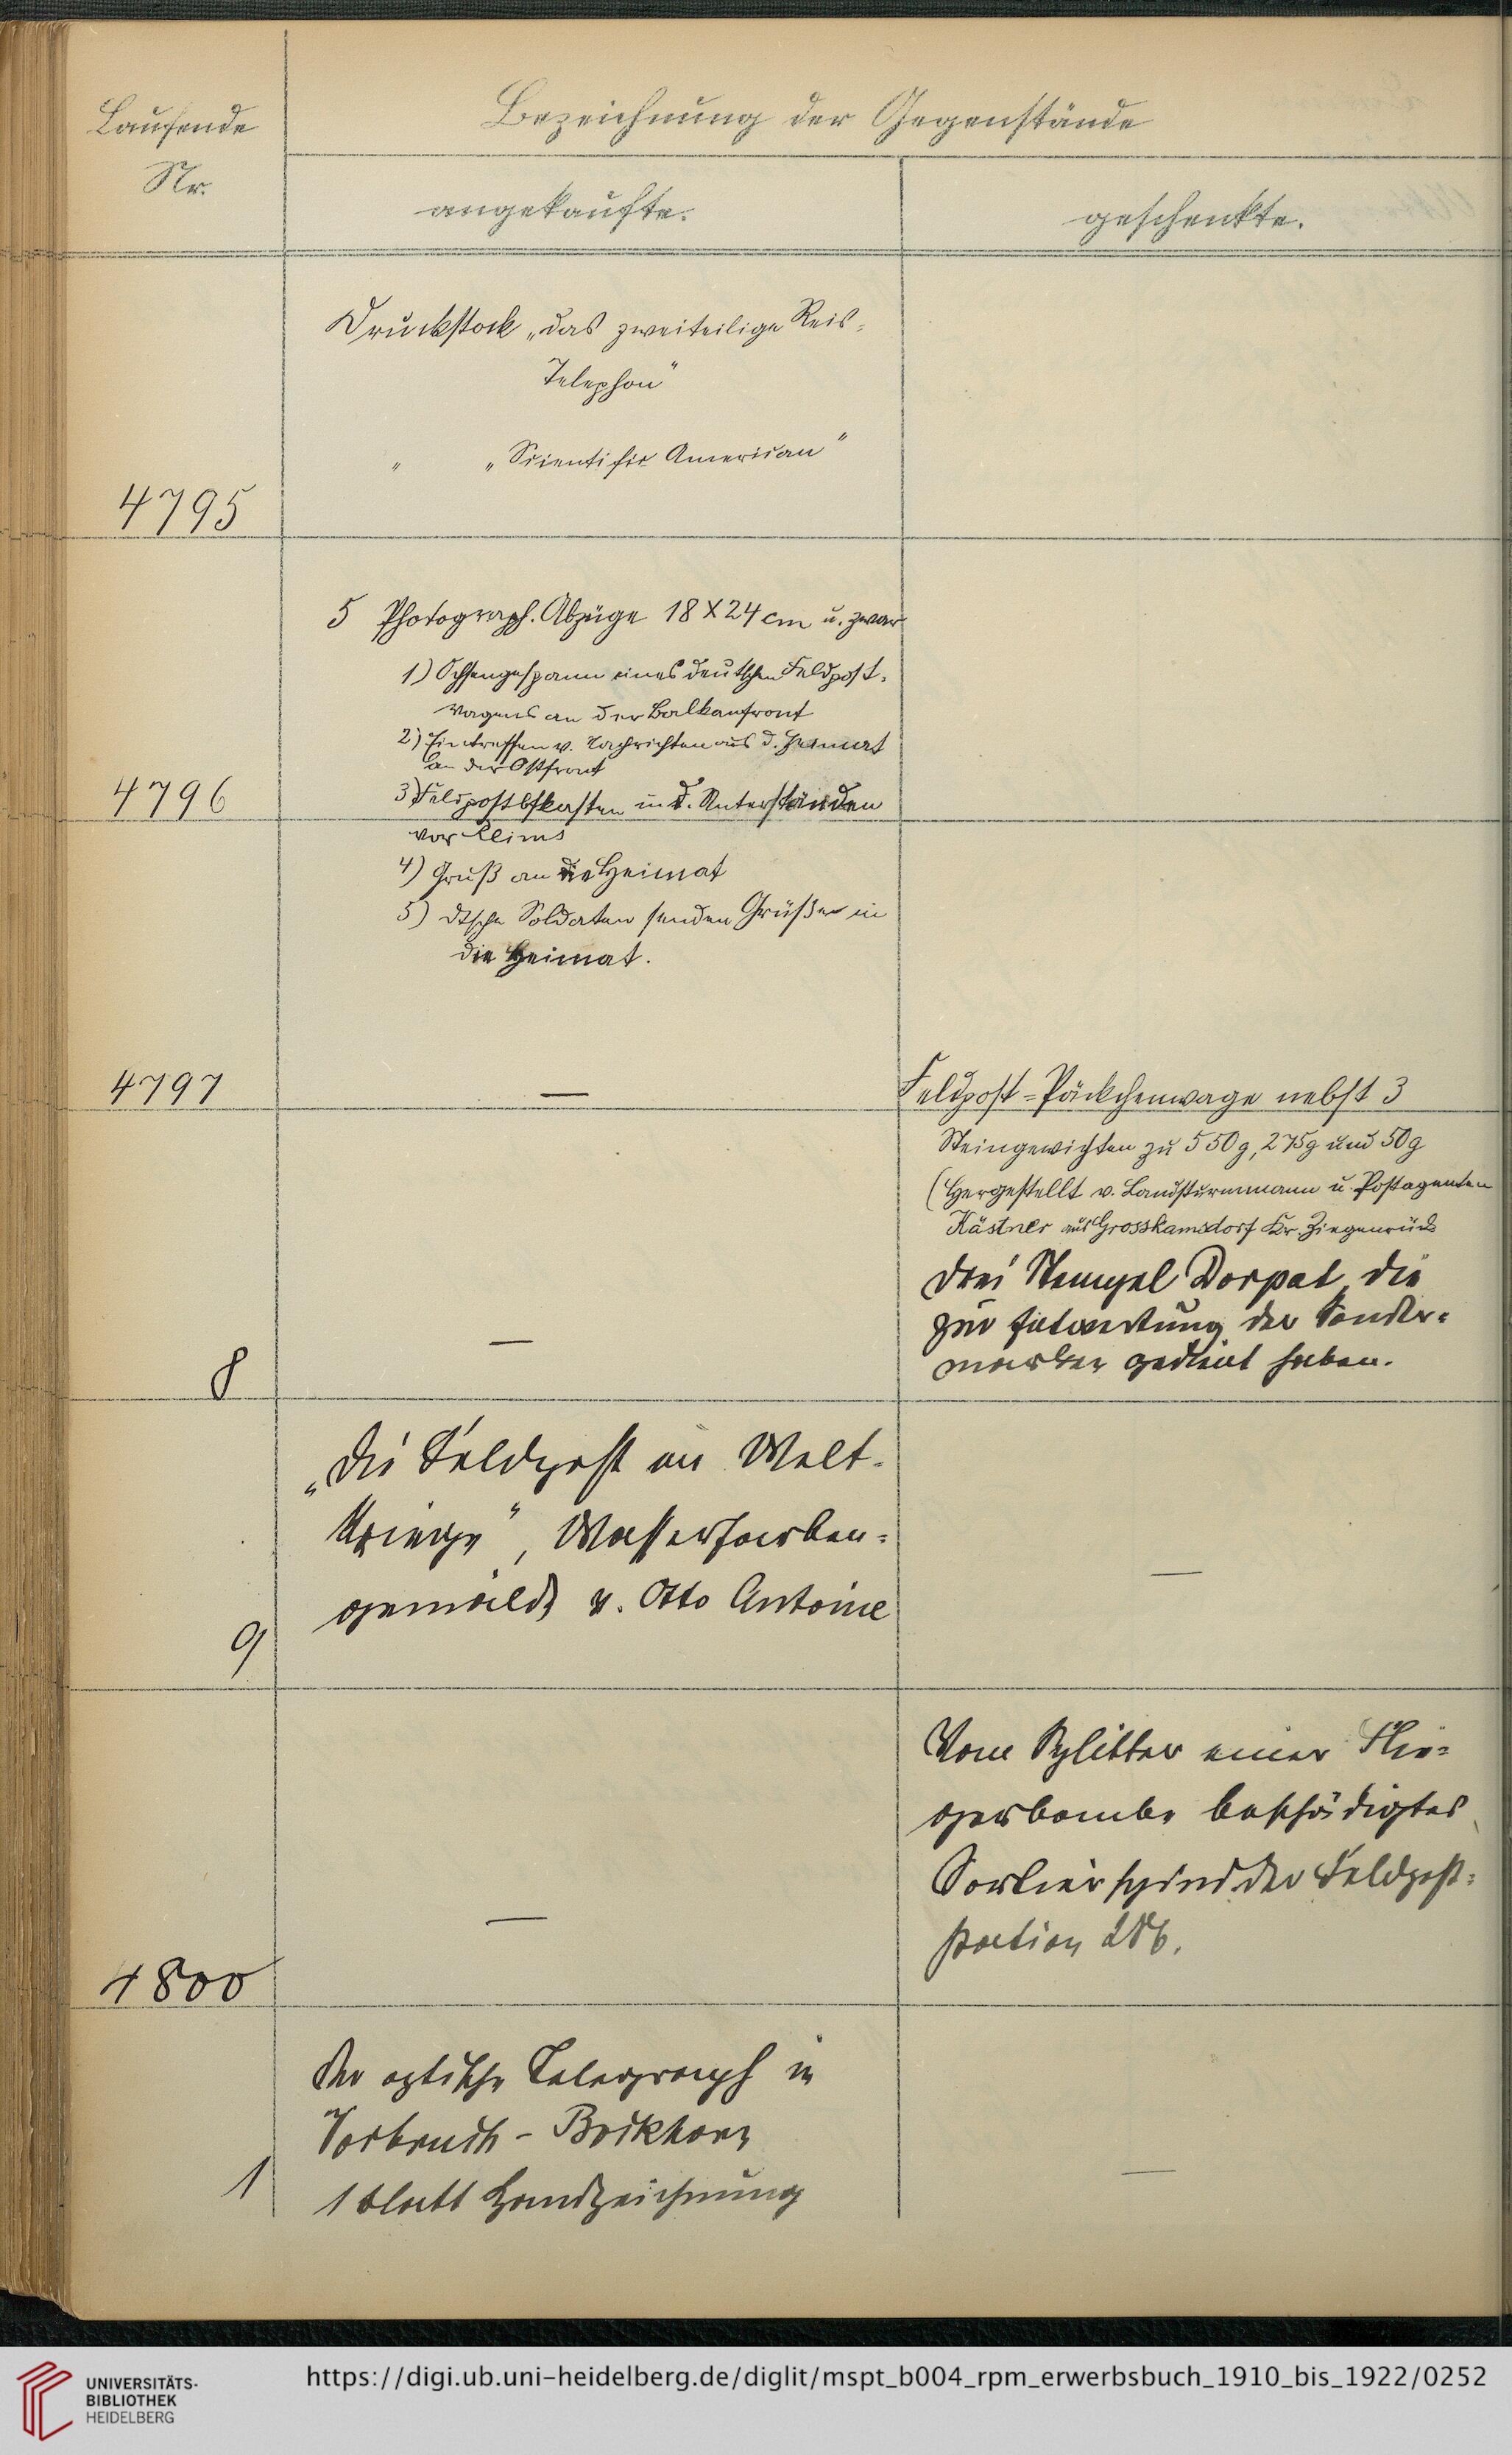 Laufende
Nr.
Bezeichnung der Gegenstände
angekaufte.
geschenkte.
Druckstock „das zweiteilige Reis-
Telephon"
" „Scientific American"
4795
5 Photograph. Abzüge 18 X 24 cm u. zwar
1) Ochsengespann eines deutschen Feldpost-
wagens an der Balkanfront
2) Eintreffen v. Nachrichten aus d. Heimat
an der Ostfront
4796
3) Feldpostbfkasten in d. Unterständen
vor Reims
4) Gruß an die Heimat
5) dtsche Soldaten senden Grüße in
die Heimat.
4797
—
Feldpost-Päckchenwage nebst 3
Steingewichten zu 550 g, 275 g und 50 g
(Hergestellt v. Landsturmmann u. Postagenten
Kästner aus Grosskamsdorf Kr. Ziegenrück
8
—
Drei Stempel Dorpat, die
zur Entwertung der Sonder-
marken gedient haben.
„Die Feldpost im Welt-
kriege", Wasserfarben-
gemälde v. Otto Antoine
9
—
Vom Splitter einer Flie-
gerbombe beschädigtes
Sortierspind der Feldpost-
station 286.
—
4800
Der optische Telegraph in
Vorbruch - Bockhorn
1 Blatt Handzeichnung
1
—
UNIVERSITÄTS-
BIBLIOTHEK
HEIDELBERG
https://digi.ub.uni-heidelberg.de/diglit/mspt_b004_rpm_erwerbsbuch_1910_bis_1922/0252